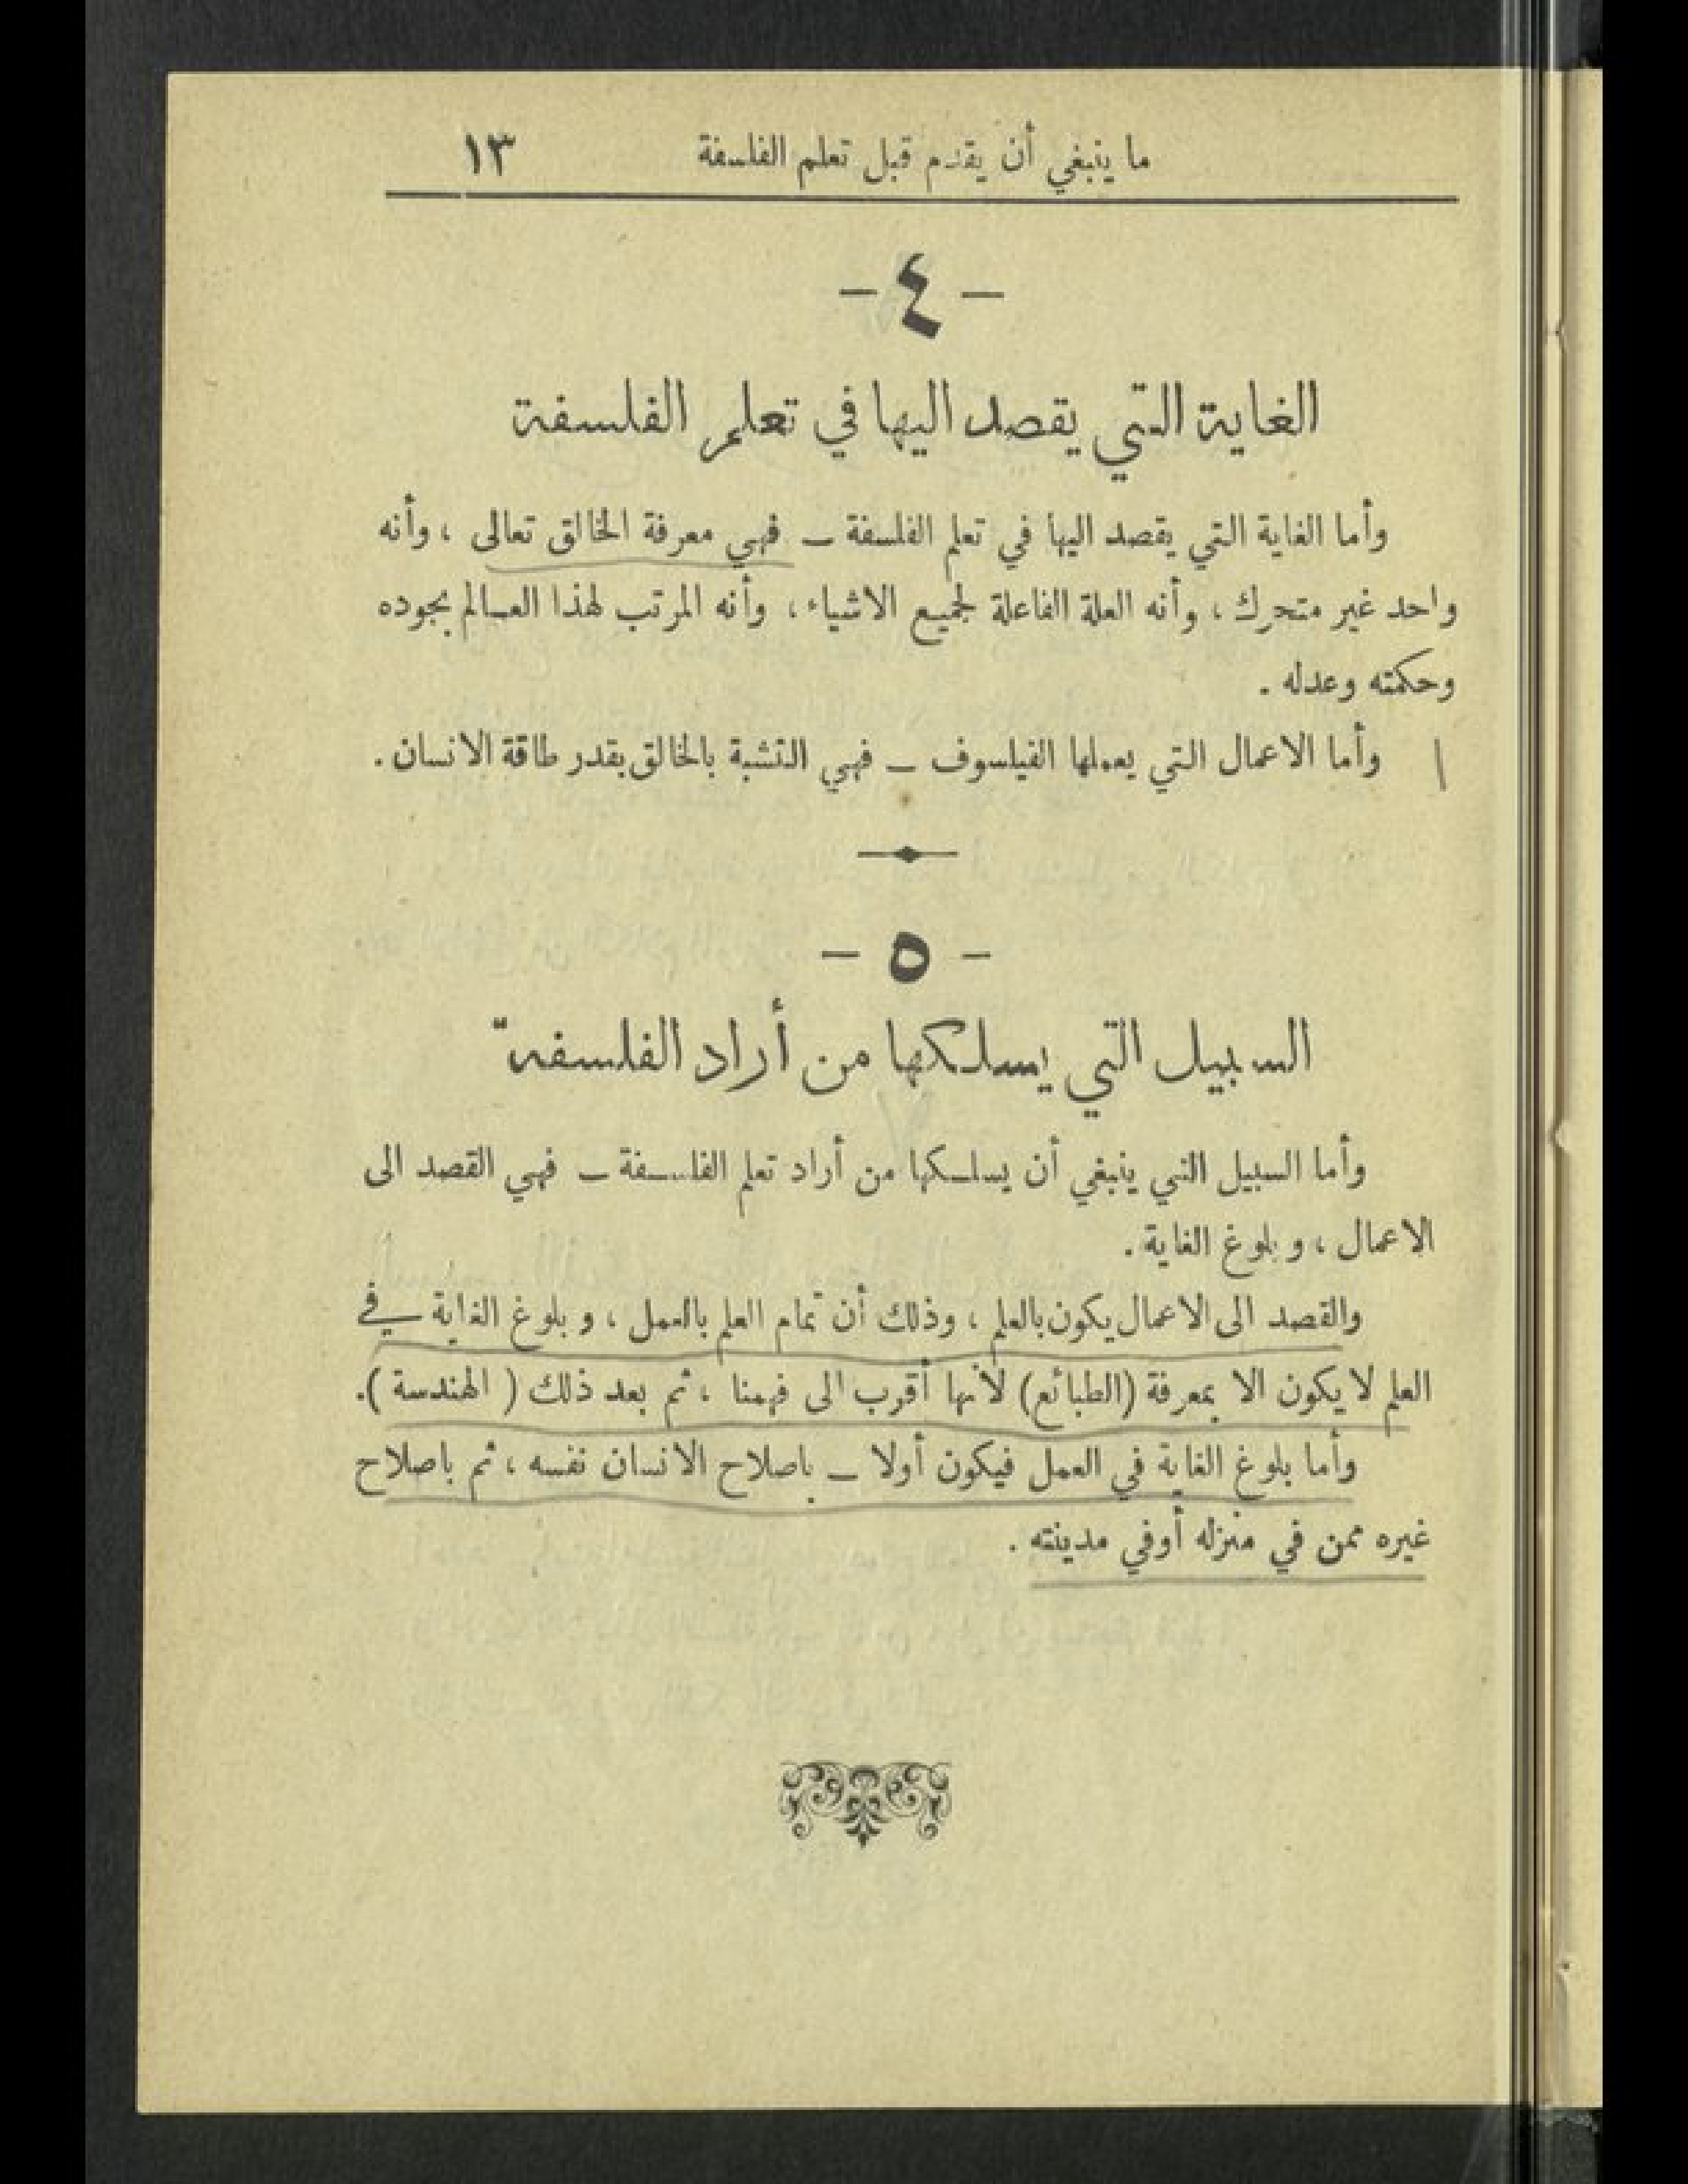 ما ينبغي أن يقدم قبل تعلم الفلسفة ١٣
- ٤ -
الغاية التي يقصد اليها في تعلم الفلسفة
وأما الغاية التي يقصد اليها في تعلم الفلسفة ــ فهي معرفة الخالق تعالى ، وأنه
واحد غير متحرك ، وأنه العلة الفاعلة لجميع الاشياء ، وأنه المرتب لهذا العالم بجوده
وحكمته وعدله .
وأما الاعمال التي يعملها الفيلسوف ــ فهي التشبة بالخالق بقدر طاقة الانسان .
- ٥ -
السبيل التي يسلكها من أراد الفلسفة
وأما السبيل التي ينبغي أن يسلكها من أراد تعلم الفلسفة ــ فهي القصد الى
الاعمال ، و بلوغ الغاية .
والقصد الى الاعمال يكون بالعلم ، وذلك أن تمام العلم بالعمل ، و بلوغ الغاية في
العلم لا يكون الا بمعرفة (الطبائع) لأنها أقرب الى فهمنا ، ثم بعد ذلك ( الهندسة ).
وأما بلوغ الغاية في العمل فيكون أولا ــ باصلاح الانسان نفسه ، ثم باصلاح
غيره ممن في منزله أوفي مدينته .